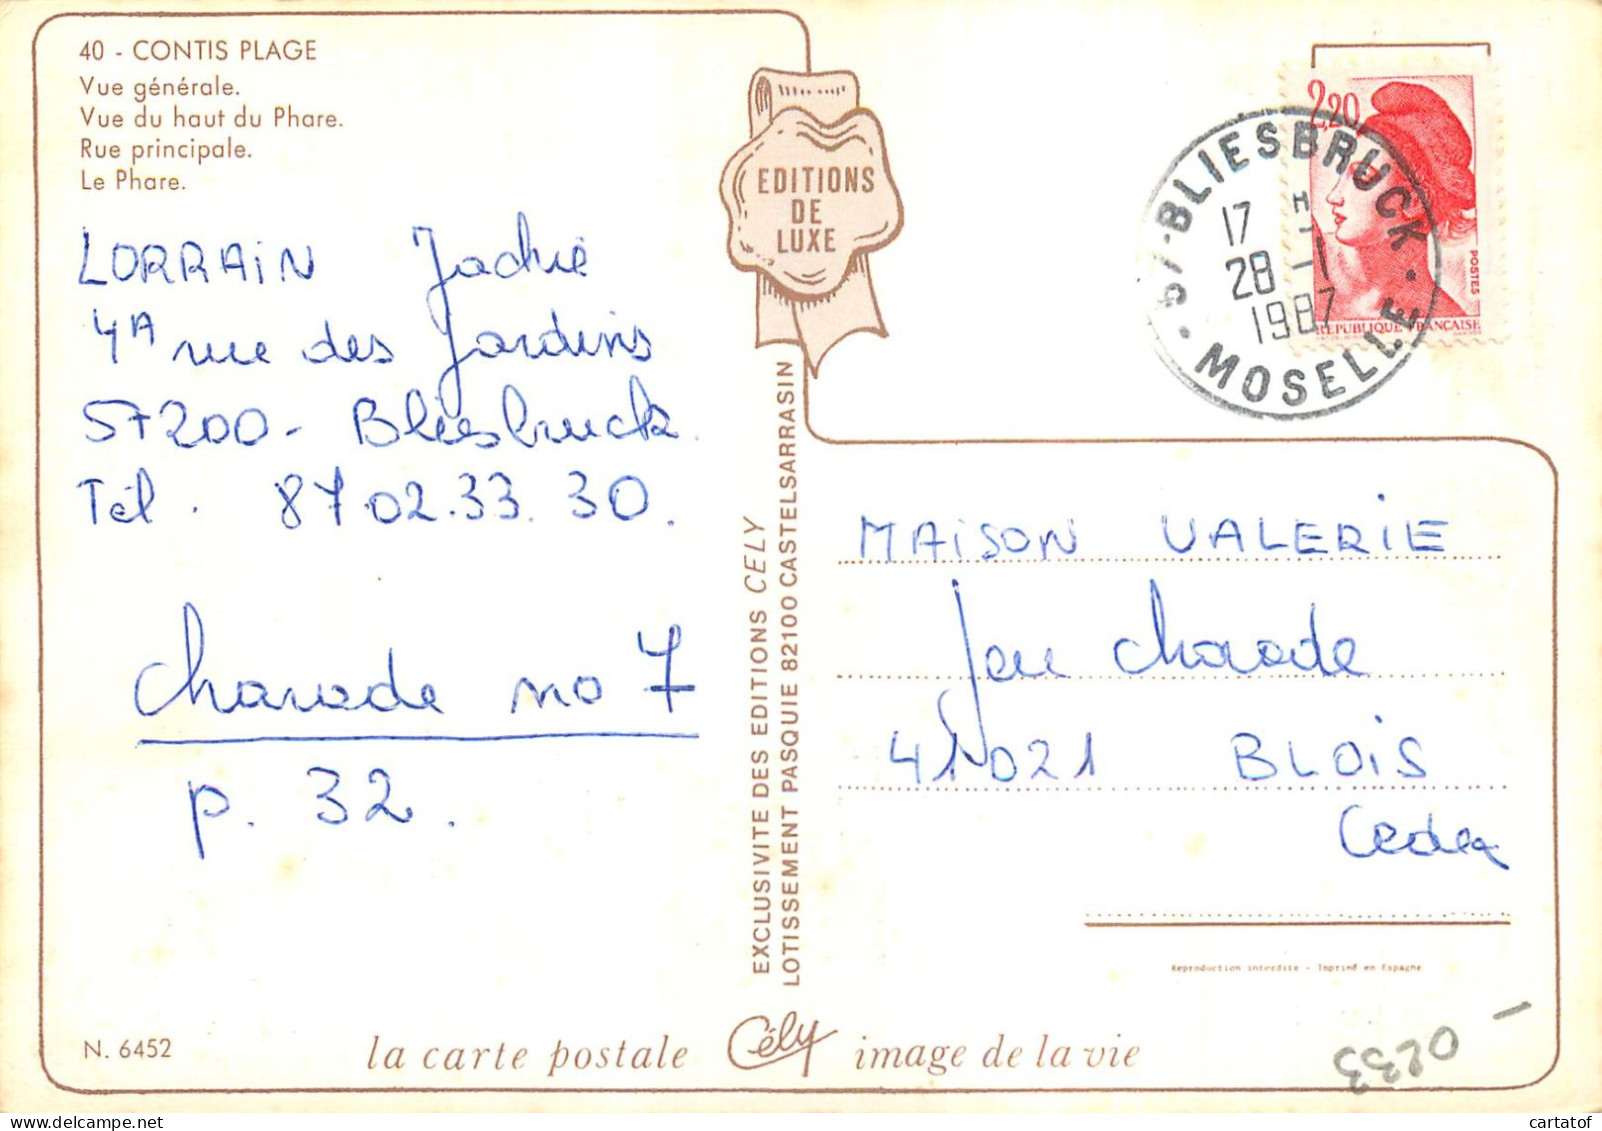 40 - CONTIS PLAGE
Vue générale.
Vue du haut du Phare.
Rue principale.
Le Phare.
LORRAIN Jackie
4A rue des Jardins
57200 - Bliesbruck.
Tél. 87.02.33.30.
Charade no 7
p. 32.
N. 6452
la carte postale Cély image de la vie
EDITIONS
DE
LUXE
EXCLUSIVITE DES EDITIONS CELY
LOTISSEMENT PASQUIE 82100 CASTELSARRASIN
2,20
POSTES
REPUBLIQUE FRANÇAISE
57-BLIESBRUCK
17 H
28 -1
1987
MOSELLE
MAISON VALERIE
Jeu charade
41021 BLOIS
Cedex
Reproduction interdite - Imprimé en Espagne
0233
cartatof